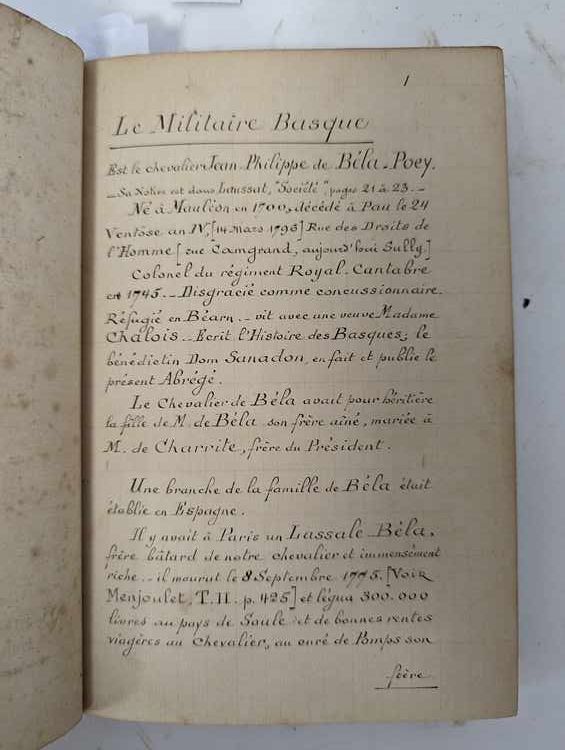 1
Le Militaire Basque
Est le chevalier Jean Philippe de Béla-Poey.
_ Sa Notice est dans Laussat, "Société", pages 21 à 23. _
Né à Mauléon en 1700, décédé à Pau le 24
Ventose an IV, [14 Mars 1796] Rue des Droits de
l'Homme [rue Camgrand, aujourd'hui Sully]
Colonel du régiment Royal-Cantabre
en 1745. _ Disgracié comme concussionnaire.
Réfugié en Béarn. _ vit avec une veuve Madame
Chalois _ Ecrit l'Histoire des Basques; le
bénédictin Dom Sanadon, en fait et publie le
présent Abrégé.
Le Chevalier de Béla avait pour héritière
la fille de M. de Béla son frère aîné, mariée à
M. de Charrite, frère du Président.
Une branche de la famille de Béla était
établie en Espagne.
Il y avait à Paris un Lassale-Béla,
frère bâtard de notre chevalier et immensément
riche _ il mourut le 8 Septembre 1775. [Voir
Menjoulet, T. II. p. 425] et légua 300.000
livres au pays de Soule et de bonnes rentes
viagères au Chevalier, au curé de Pomps son
frère